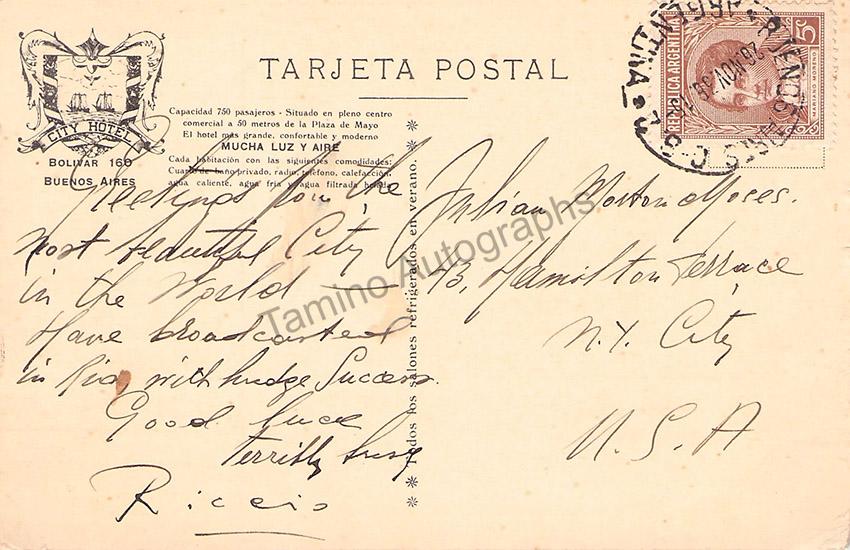 TARJETA POSTAL
CITY HOTEL
BOLIVAR 160
BUENOS AIRES
Capacidad 750 pasajeros - Situado en pleno centro
comercial a 50 metros de la Plaza de Mayo
El hotel más grande, confortable y moderno
MUCHA LUZ Y AIRE
Cada habitación con las siguientes comodidades:
Cuarto de baño privado, radio, teléfono, calefacción,
agua caliente, agua fría y agua filtrada helada
Todos los salones refrigerados en verano.
REPUBLICA ARGENTINA
5c
MARIANO MORENO
BUENOS AIRES
ARGENTINA
20 NOV 38
Greetings from the
most beautiful City
in the World —
Have broadcasted
in Rio, with hudge Success.
Good luck
terribly busy
Riccio
Julian Morton Moses.
43, Hamilton Terrace
N.Y. City
U.S.A
Tamino Autographs